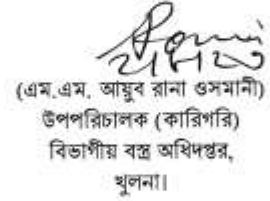 (এম.এম. আয়ুব রানা ওসমানী)
উপপরিচালক (কারিগরি)
বিভাগীয় বস্ত্র অধিদপ্তর,
খুলনা।